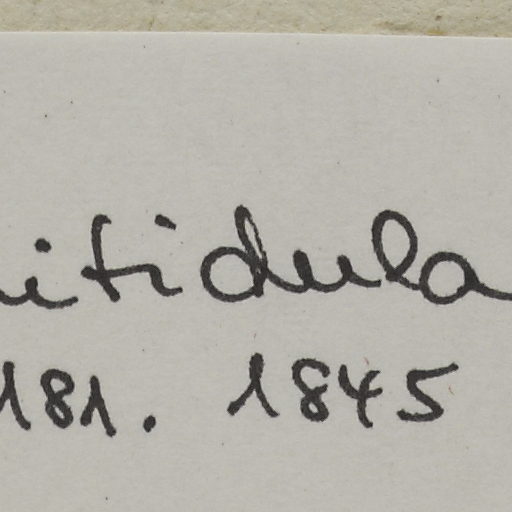 itidula
181. 1845